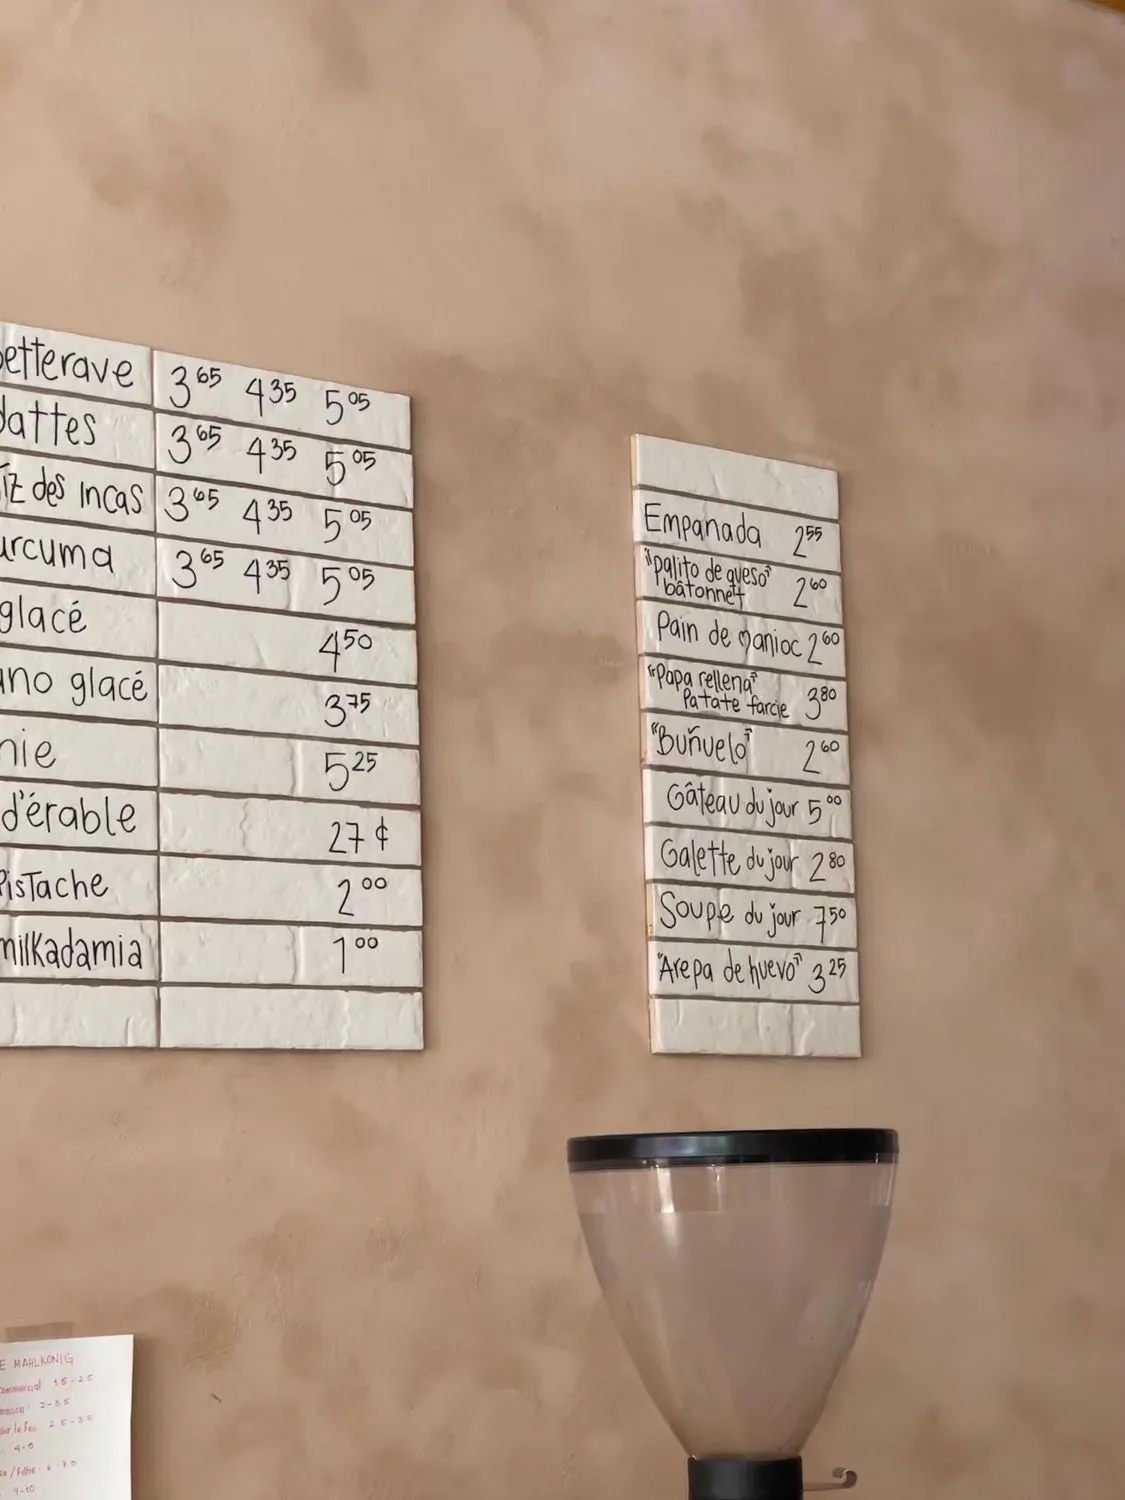 etterave 3 65 4 35 5 05
dattes 3 65 4 35 5 05
ïz des Incas 3 65 4 35 5 05
urcuma 3 65 4 35 5 05
glacé 4 50
ano glacé 3 75
nie 5 25
d'érable 27 ¢
Pistache 2 00
milkadamia 1 00
Empanada 2 55
"palito de queso"
bâtonnet 2 60
Pain de manioc 2 60
"Papa rellena"
Patate farcie 3 80
"Buñuelo" 2 60
Gâteau du jour 5 00
Galette du jour 2 80
Soupe du jour 7 50
"Arepa de huevo" 3 25
E MAHLKONIG
commercial 1.5 - 2.5
maison : 2 - 3.5
sur le feu : 2.5 - 3.5
4 - 5
/ Filtre :
9 - 10